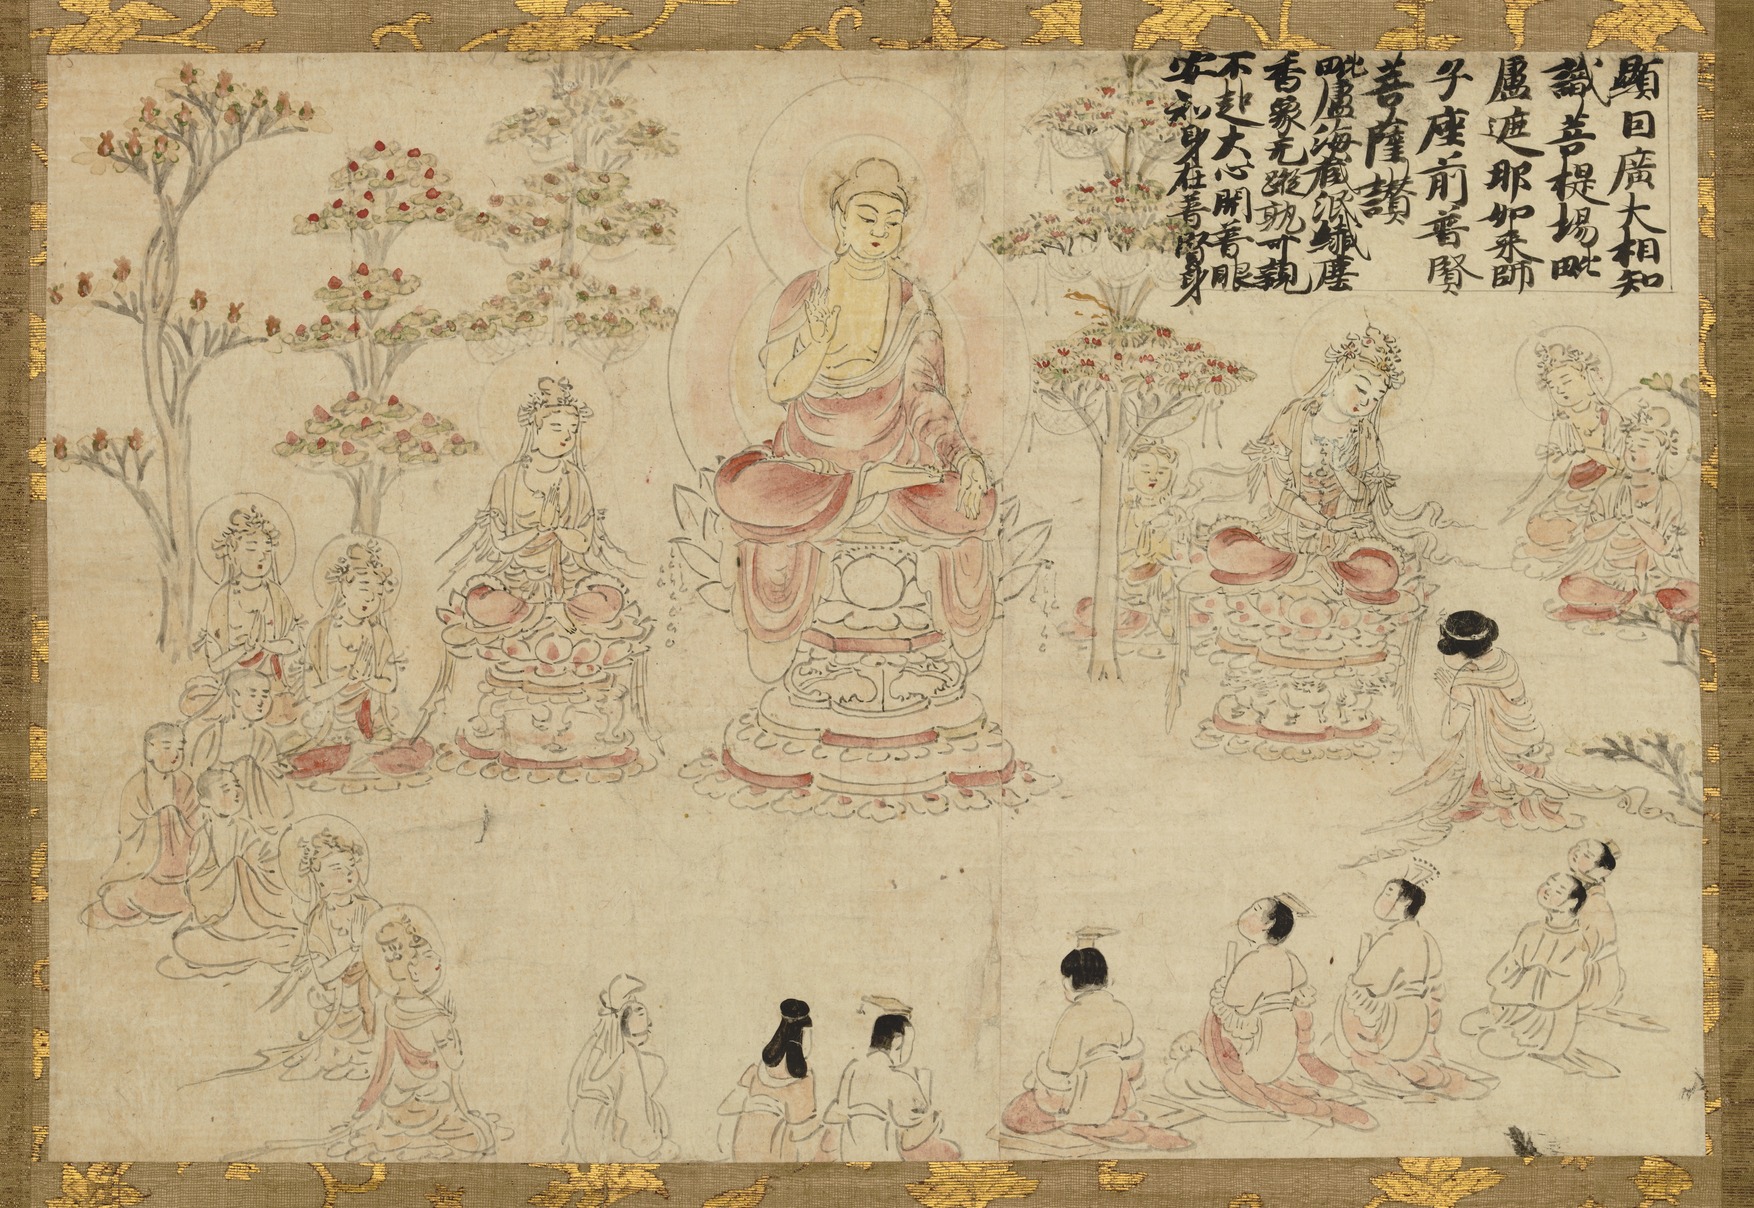 顯曰廣大相知
識菩提場毗
盧遮那如来師
子座前普賢
菩薩讃
毗盧海藏泯纎塵
香象无蹤孰可親
不起大心開普眼
安知身在普賢身